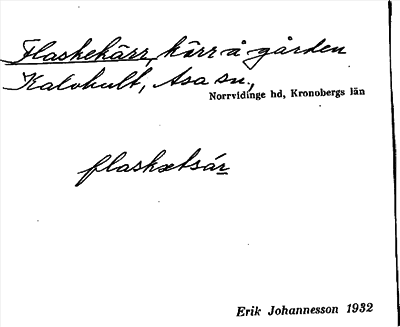 Flaskekärr, kärr å gården
Kalvhult, Asa sn,
Norrvidinge hd, Kronobergs län
flaskətsár
Erik Johannesson 1932